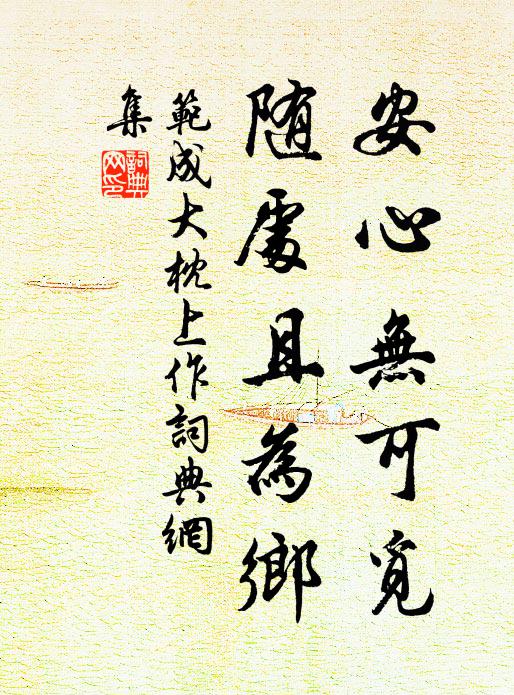 安心無可覓
随處且為鄉
範成大枕上作詞典網
集
詞典
网印